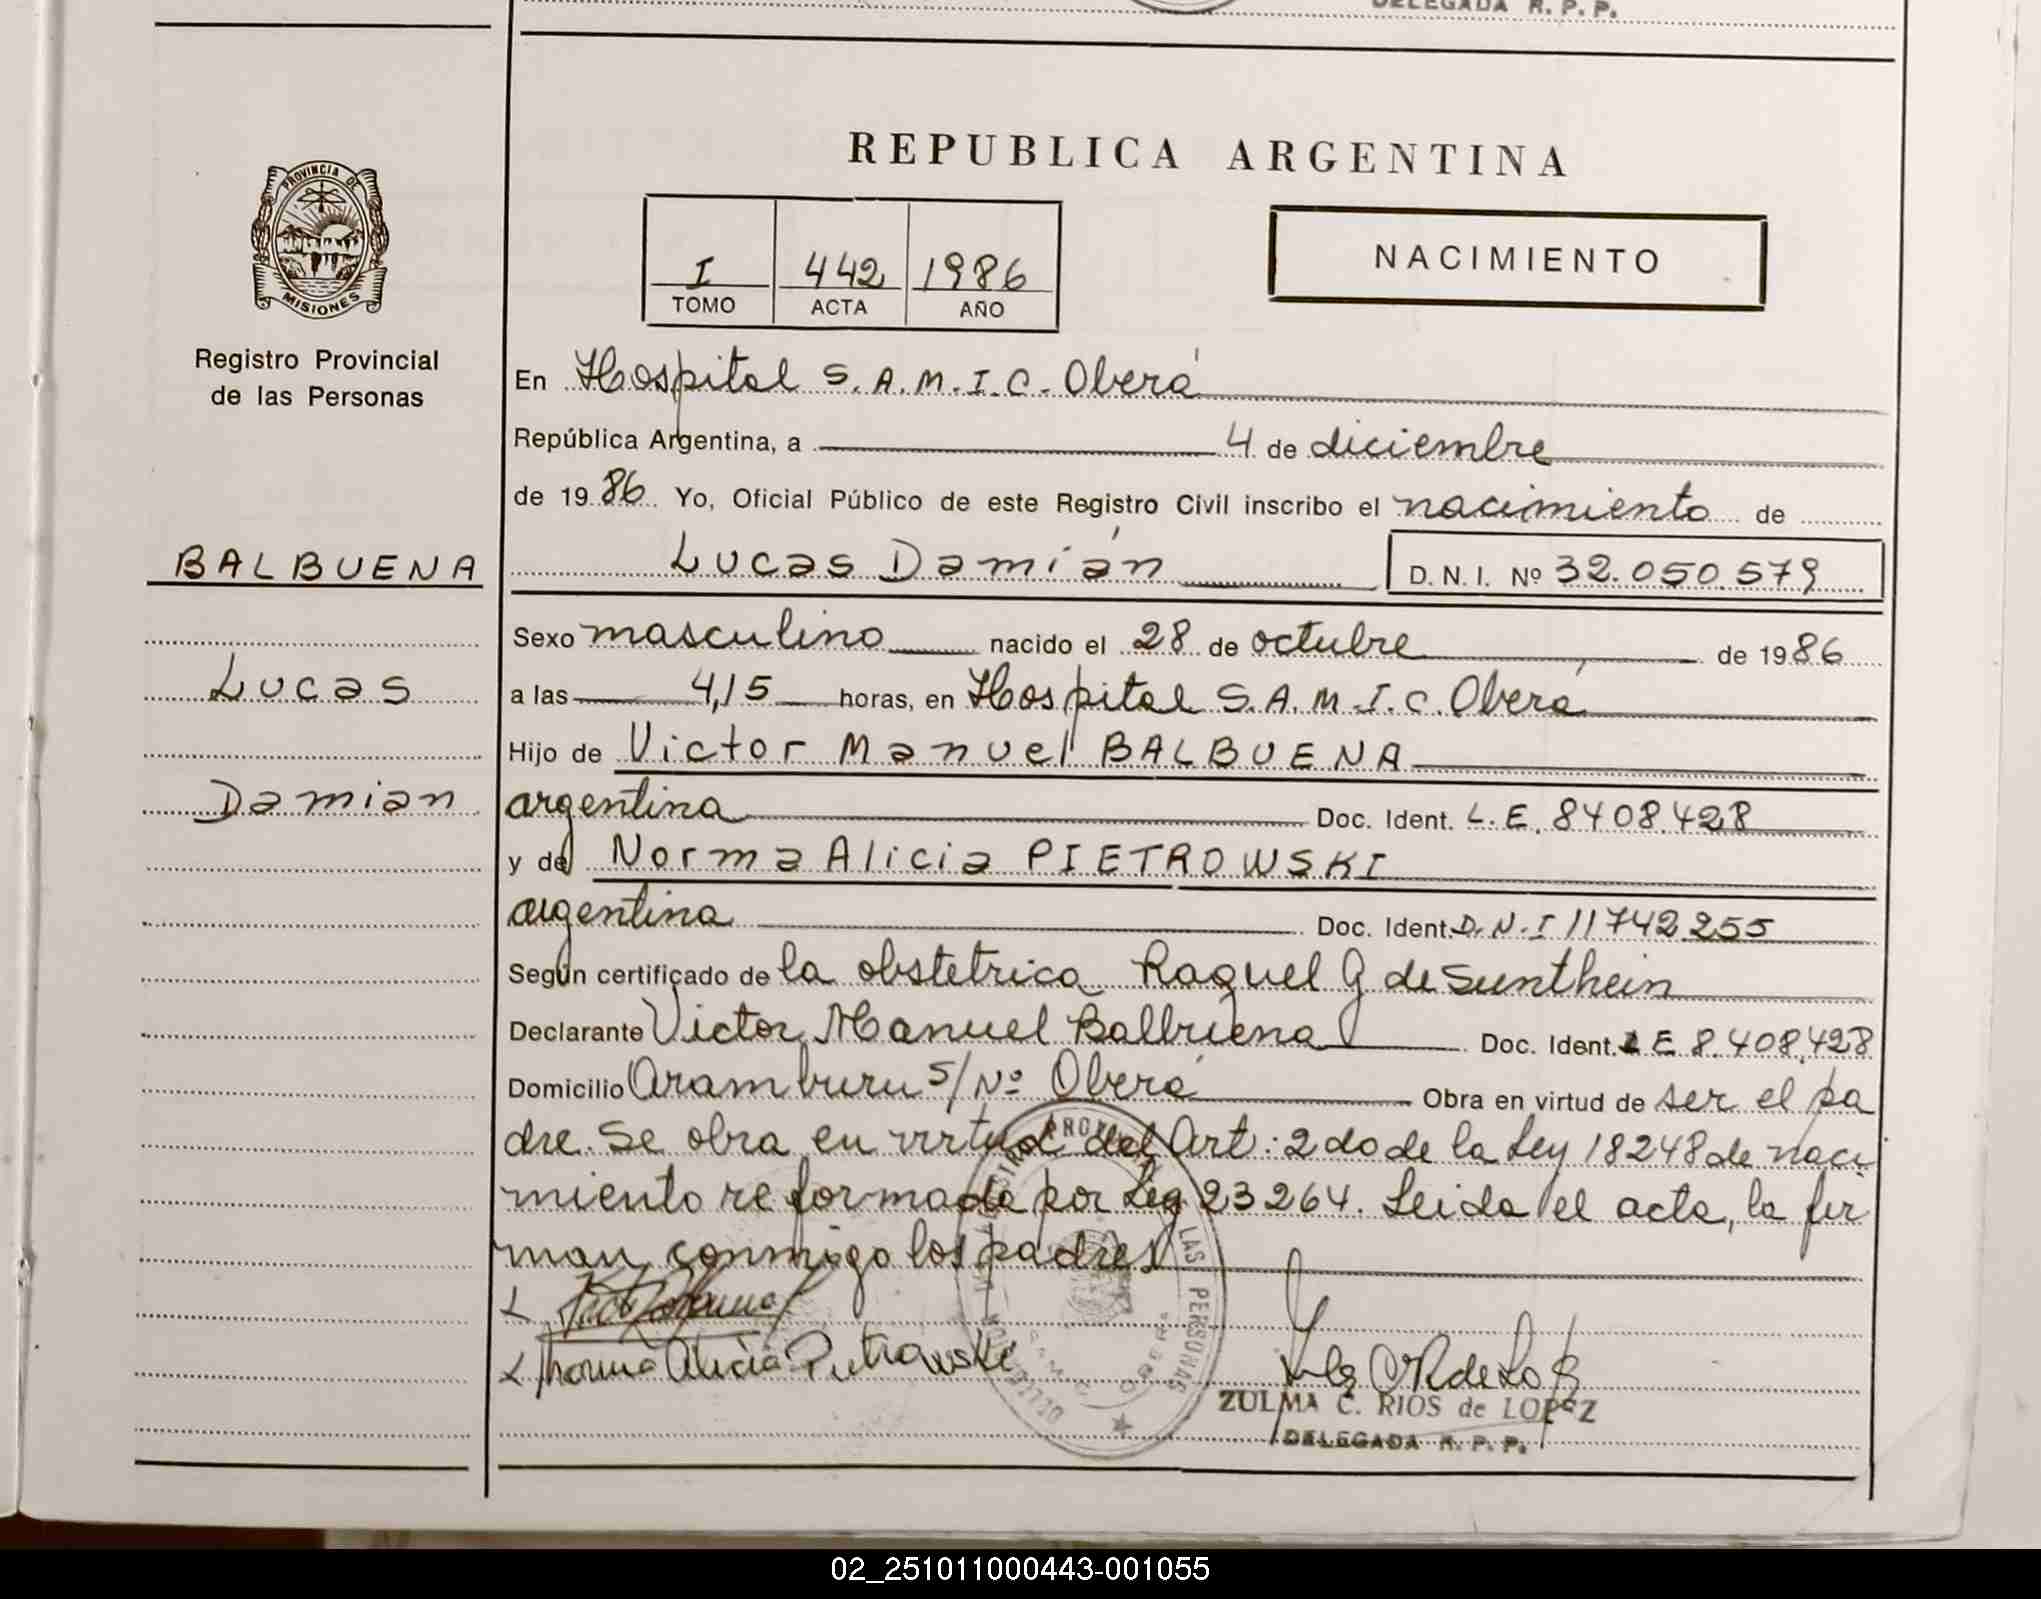 DELEGADA R. P. P.
REPUBLICA ARGENTINA
PROVINCIA DE
MISIONES
Registro Provincial
de las Personas
I 442 1986
TOMO ACTA AÑO
NACIMIENTO
En Hospital S.A.M.I.C. Oberá
República Argentina, a 4 de diciembre
de 1986 Yo, Oficial Público de este Registro Civil inscribo el nacimiento de
BALBUENA
Lucas Damián D.N.I. Nº 32.050.579
Sexo masculino nacido el 28 de octubre de 1986
Lucas
a las 4,15 horas, en Hospital S.A.M.I.C. Oberá
Hijo de Victor Manuel BALBUENA
Damian
argentina Doc. Ident. L.E. 8408.428
y de Norma Alicia PIETROWSKI
argentina Doc. Ident. D.N.I 11742.255
Según certificado de la obstetrica Raquel G de Sunthein
Declarante Victor Manuel Balbuena Doc. Ident. L E 8.408.428
Domicilio Aramburu S/Nº Oberá Obra en virtud de ser el pa
dre. Se obra en virtud del Art: 2do de la Ley 18248 de naci
miento reformada por Ley 23264. Leida el acta, la fir
man conmigo los padres
Norma Alicia Pietrowski
PROVINCIAL LAS PERSONAS
DELEGACION
SAMIC OBERA
ZULMA C. RIOS de LOPEZ
DELEGADA R. P. P.
02_251011000443-001055